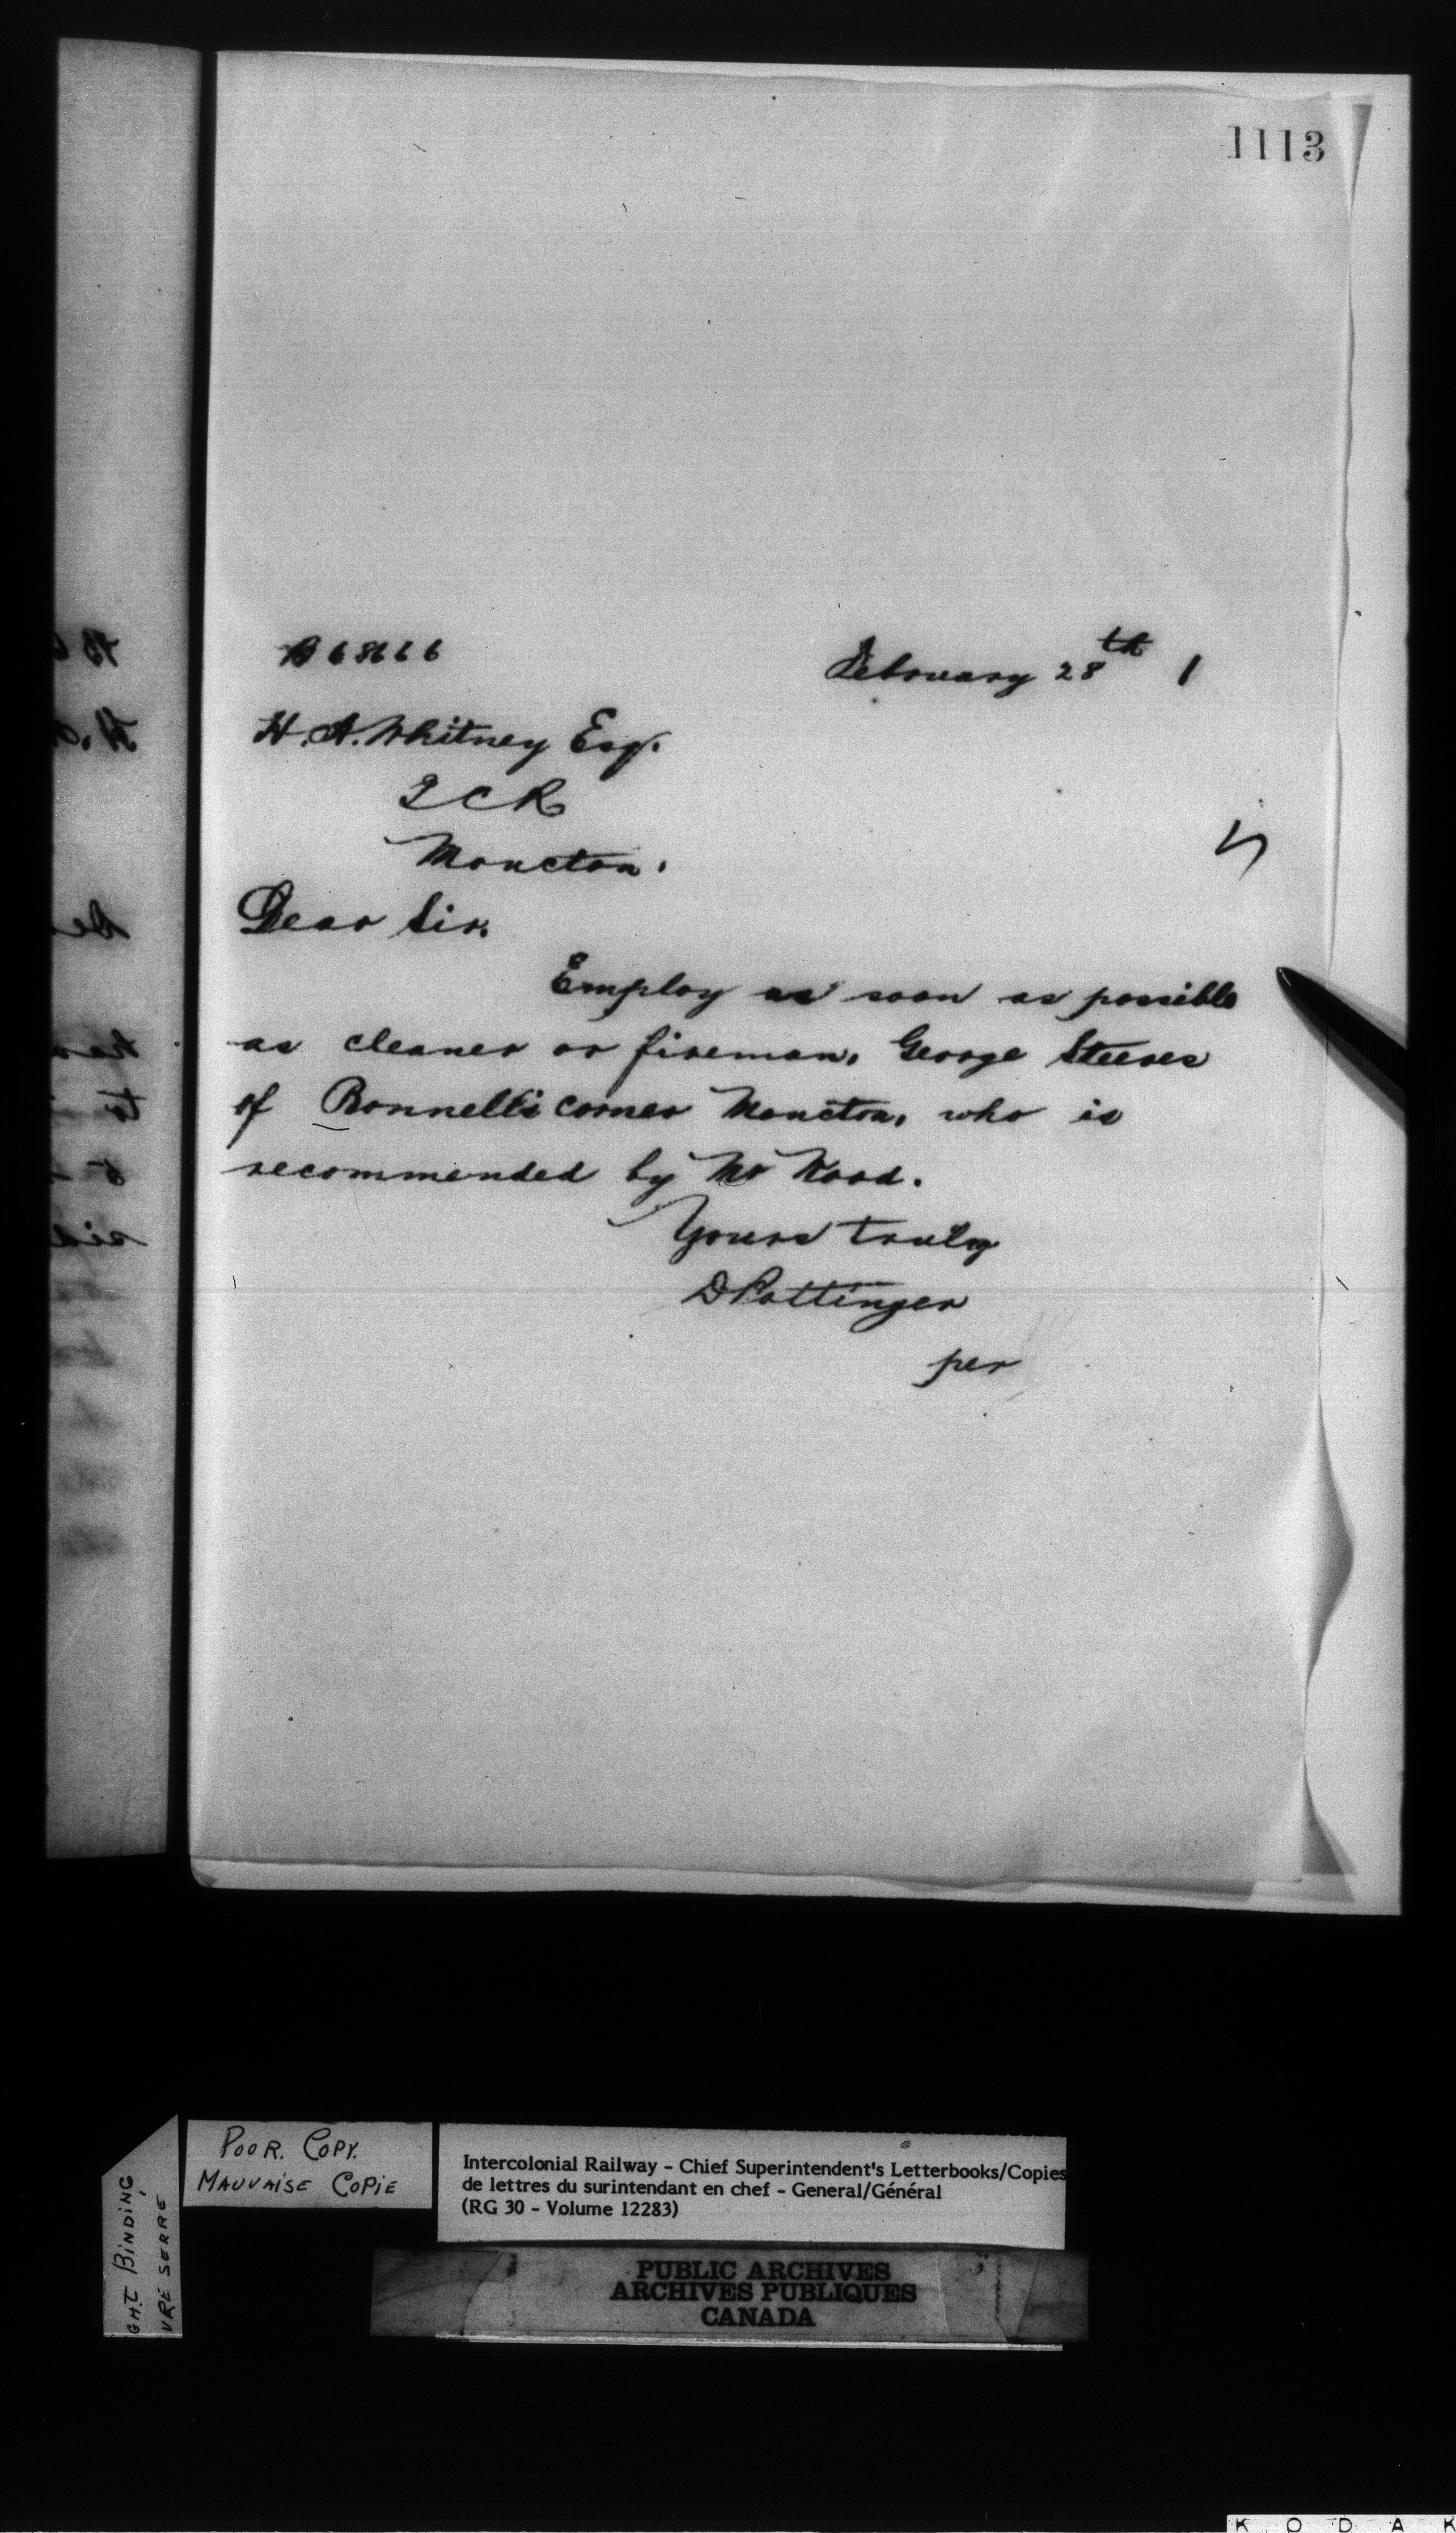 1113
B 68666
February 28th 1
H. A. Whitney Esq.
I C R
Moncton.
Dear Sir.
Employ as soon as possible
as cleaner or fireman, George Steeves
of Bonnell's corner Moncton, who is
recommended by Mr Wood.
Yours truly
D Pottinger
per
POOR. COPY.
MAUVAISE COPIE
GHT BINDING
VRE SERRE
Intercolonial Railway - Chief Superintendent's Letterbooks/Copies
de lettres du surintendant en chef - General/Général
(RG 30 - Volume 12283)
PUBLIC ARCHIVES
ARCHIVES PUBLIQUES
CANADA
KODAK